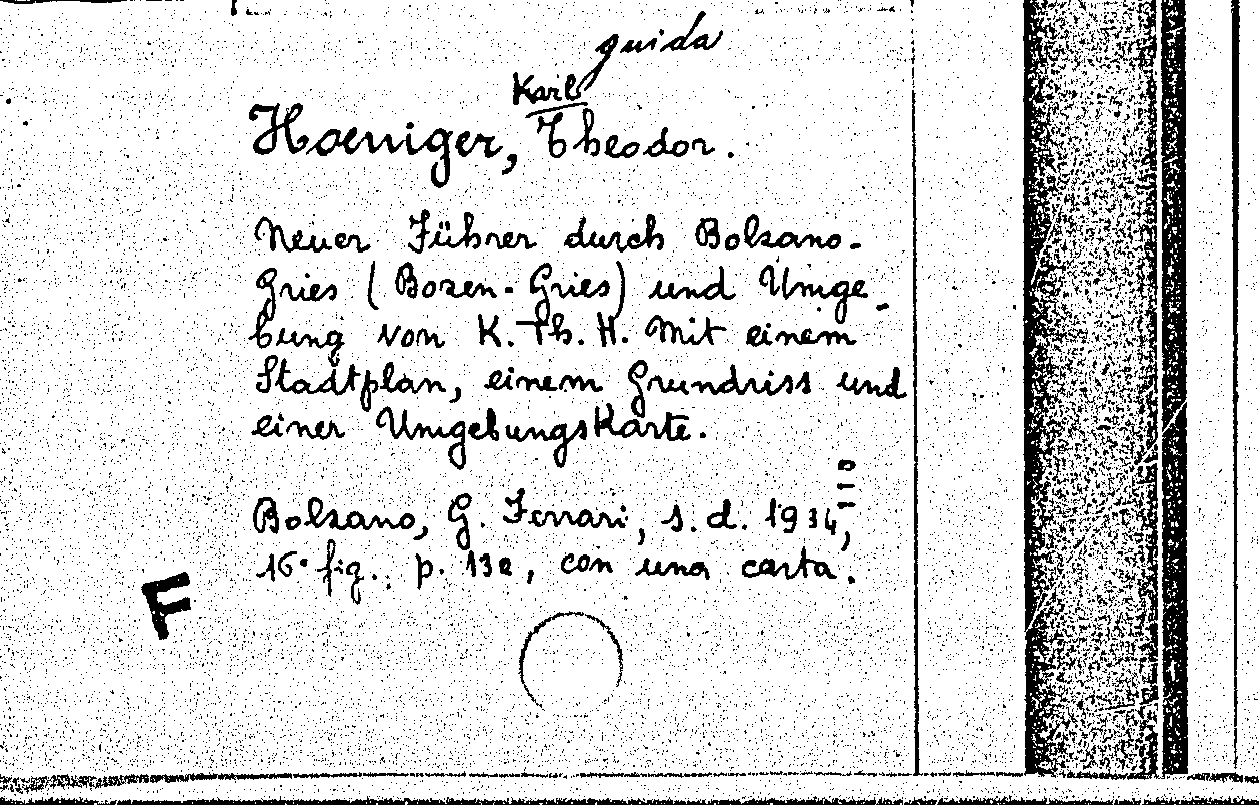 guida
Karl
Hoeniger, Theodor.
Neuer Führer durch Bolzano-
Gries (Bozen-Gries) und Umge-
bung von K. Th. H. Mit einem
Stadtplan, einem Grundriss und
einer Umgebungskarte.
Bolzano, G. Ferrari, s. d. 1934,
16° fig. p. 132, con una carta.
F